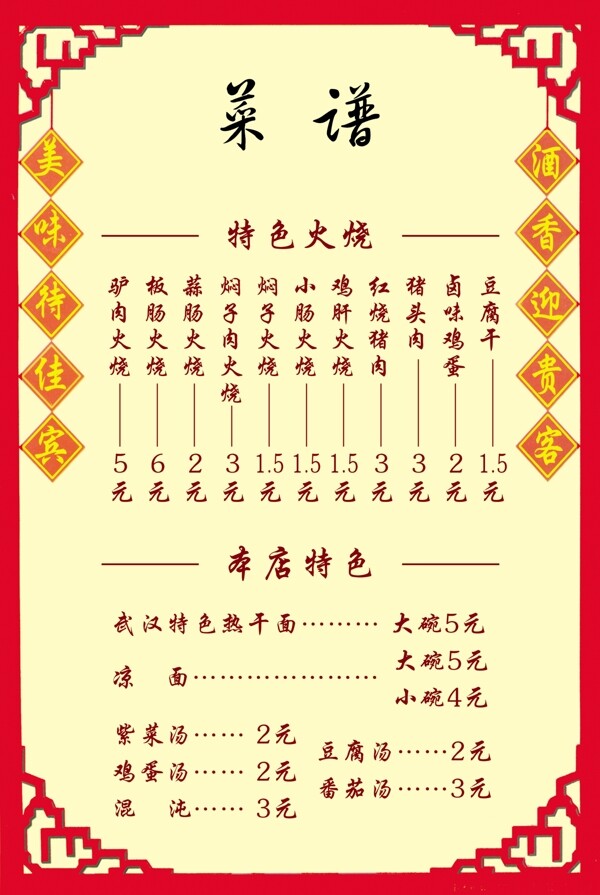 菜谱
美味待佳宾
酒香迎贵客
特色火烧
驴肉火烧 5元
板肠火烧 6元
蒜肠火烧 2元
焖子肉火烧 3元
焖子火烧 1.5元
小肠火烧 1.5元
鸡肝火烧 1.5元
红烧猪肉 3元
猪头肉 3元
卤味鸡蛋 2元
豆腐干 1.5元
本店特色
武汉特色热干面……… 大碗5元
凉 面………………… 大碗5元
小碗4元
紫菜汤…… 2元
鸡蛋汤…… 2元
混 沌…… 3元
豆腐汤……2元
番茄汤……3元